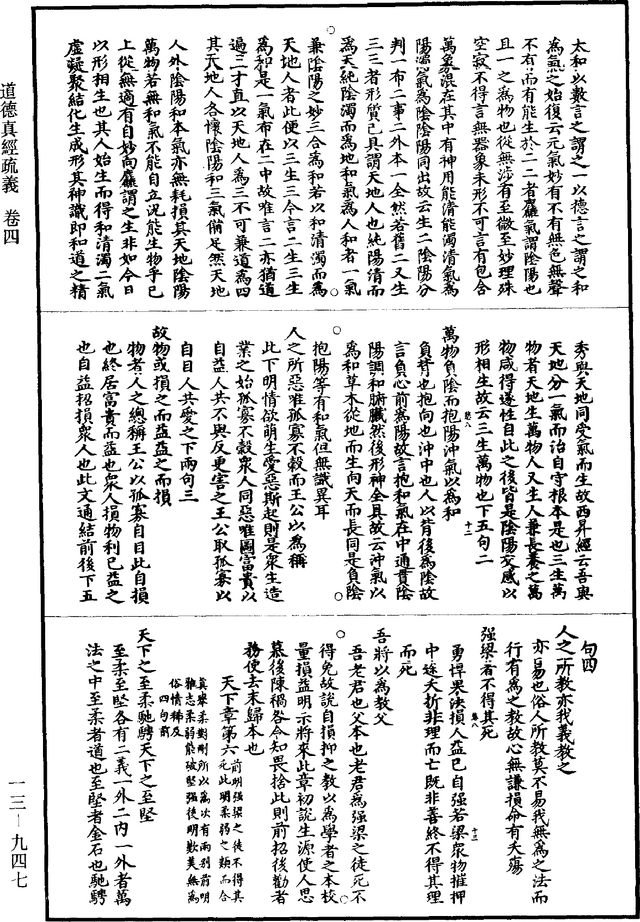 太和以數言之謂之一以德言之謂之和
為氣之始復云元氣妙有不有無色無聲
不有而有能生於二二者麤氣謂陰陽也
且一之為物也從無涉有至微至妙理殊
空寂不得言無器象未形不可言有包含
萬象混在其中有神用能清能濁清氣為
陽濁氣為陰陰陽同出故云生二陰陽分
判一布二事二外本一全然若舊二又生
三三者形質已具謂天地人也純陽清而
為天純陰濁而為地和氣為人和者一氣
兼陰陽之妙三合為和若以和清濁而為
天地人者此便以三生三今言二生三生
為和是一氣布在二中故唯言二亦猶道
遍三才直以天地人為三不可兼道為四
其天地人各懷陰陽和三氣備足然天地
人外陰陽和本氣亦無耗損其天地陰陽
萬物若無和氣不能自立況能生物乎已
上從無適有自妙向麤謂之生非如今日
以形相生也其人始生而得和清濁二氣
虛凝聚結化生成形其神識即和道之精
秀與天地同受氣而生故西昇經云吾與
天地分一氣而治自守根本是也三生萬
物者天地生萬物人又生人兼長養之萬
物咸得遂性自此之後皆是陰陽交感以
形相生故云三生萬物也下五句二
萬物負陰而抱陽沖氣以為和
負背也抱向也沖中也人以背後為陰故
言負心前為陽故言抱和氣在中通貫陰
陽調和腑臟然後形神全具故云沖氣以
為和草木從地而生向天而長同是負陰
抱陽等有和氣但無識異耳
人之所惡唯孤寡不穀而王公以為稱
此下明情欲萌生愛惡斯起則是眾生造
業之始孤寡不穀眾人同惡唯國富貴以
自益人共不與反更害之王公取孤寡以
自目人共愛之下兩句三
故物或損之而益益之而損
物者人之總稱王公以孤寡自目此自損
也終居富貴而益也眾人損物利已益之
也自益招損眾人也此文通結前後下五
句四
人之所教亦我義教之
亦易也俗人所教莫不易我無為之法而
行有為之教故心無謙損命有夭殤
強梁者不得其死
勇悍果決損人益已自強若梁眾物摧押
中途夭折非理而亡既非善終不得其理
而死
吾將以為教父
吾老君也父本也老君為強梁之徒死不
得免故說自損抑之教以為學者之本校
量損益明示將來此章初說生源使人思
慕後陳禍咎令知畏捨此則前招後勸者
務使去末歸本也
天下章第六
天下之至柔馳騁天下之至堅
至柔至堅各有二義一外二內一外者萬
法之中至柔者道也至堅者金石也馳騁
道德真經疏義 卷四
一三－九四七